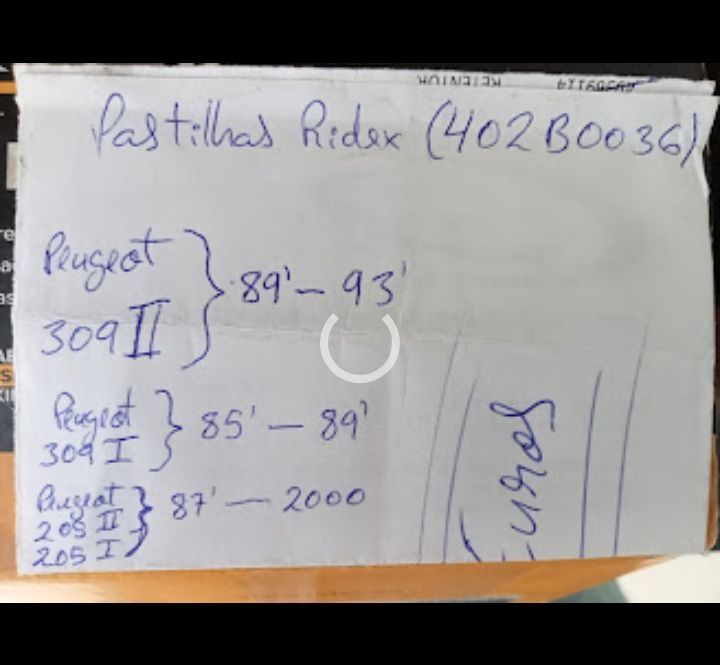 RETENTOR
Pastilhas Ridex (402B0036)
Peugeot
309 II } 89' - 93'
Peugeot
309 I } 85' - 89'
Peugeot
205 II
205 I } 87' - 2000